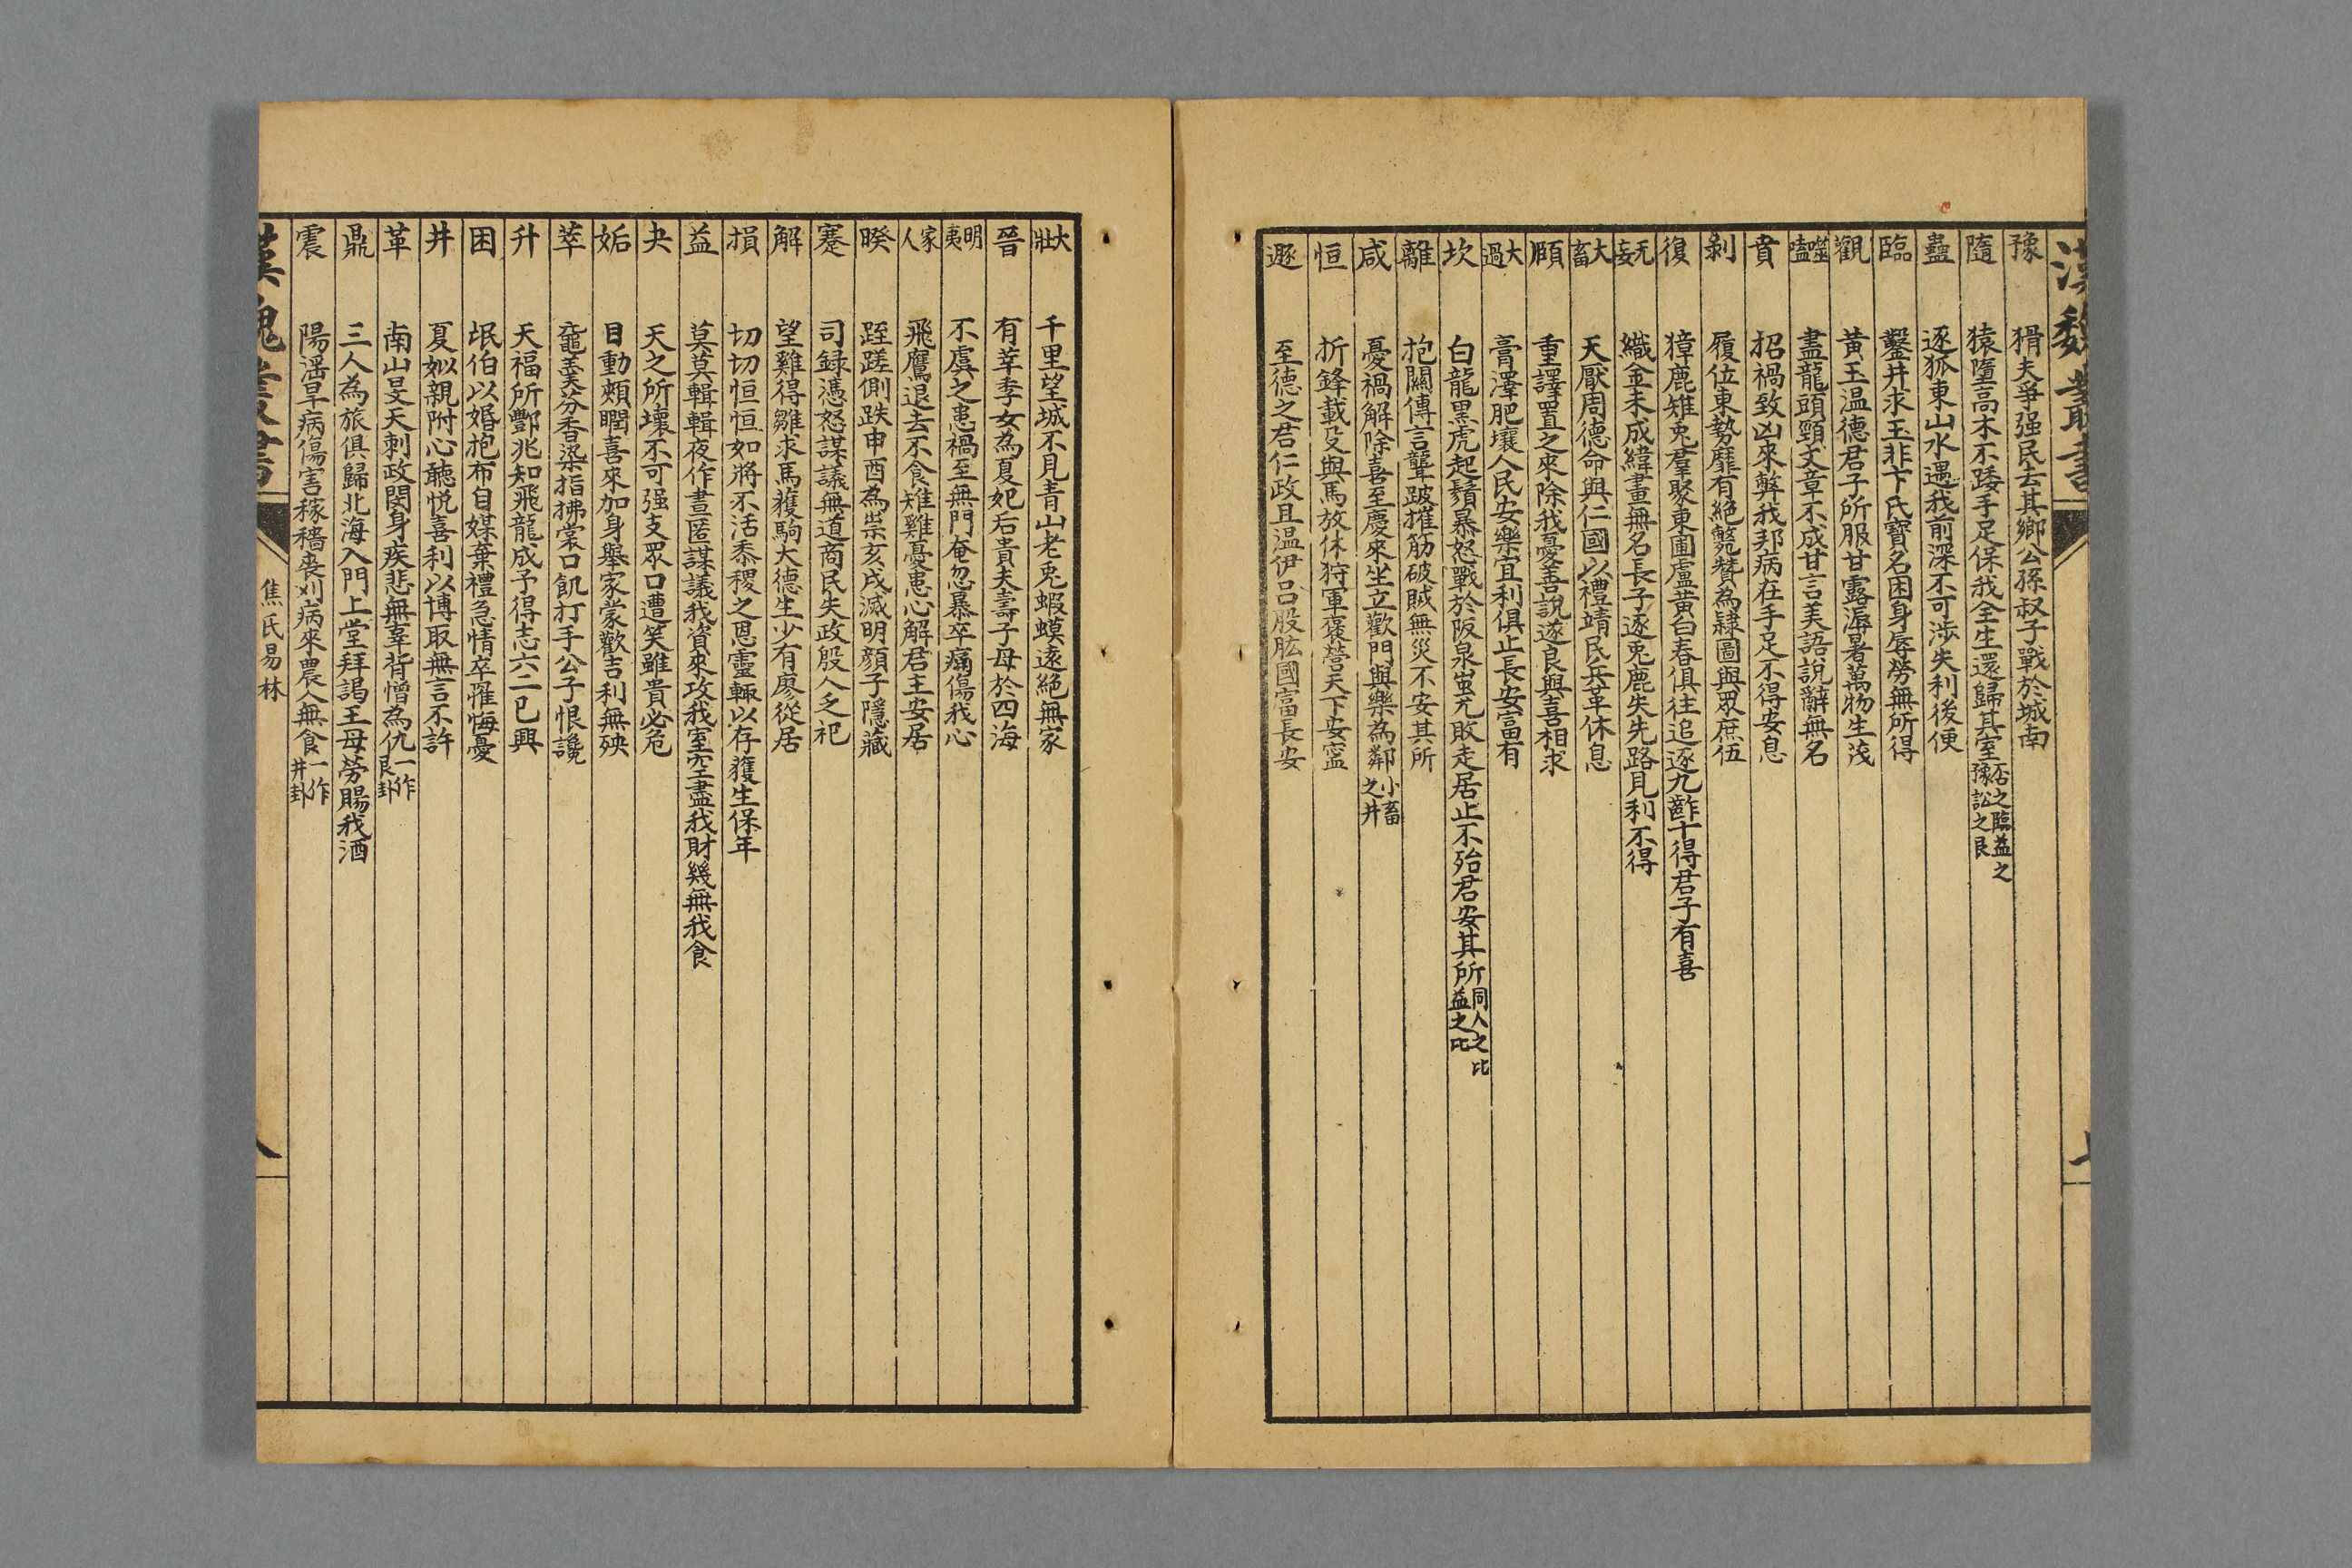 漢魏叢書
豫 猾夫爭强民去其鄉公孫叔子戰於城南
隨 猿墮高木不踒手足保我全生還歸其室否之臨益之豫訟之艮
蠱 逐狐東山水遏我前深不可涉失利後便
臨 鑿井求玉非卞氏寶名困身辱勞無所得
觀 黃玉温德君子所服甘露溽暑萬物生茂
噬嗑 畫龍頭頸文章不成甘言美語說辭無名
賁 招禍致凶來弊我邦病在手足不得安息
剝 履位東勢靡有絶斃贊為隸圖與眾庶伍
復 獐鹿雉兎羣聚東囿盧黄白脊俱往追逐九齚十得君子有喜
无妄 織金未成緯畫無名長子逐兎鹿失先路見利不得
大畜 天厭周德命與仁國以禮靖民兵革休息
頤 重譯置之來除我憂善說遂良與喜相求
大過 膏澤肥壤人民安樂宜利俱止長安富有
坎 白龍黑虎起鬚暴怒戰於阪泉蚩尤敗走居止不殆君安其所同人之比益之比
離 抱關傳言聾跛摧筋破賊無災不安其所
咸 憂禍解除喜至慶來坐立歡門與樂為鄰小畜之井
恒 折鋒載殳與馬放休狩軍裹營天下安寍
遯 至德之君仁政且温伊吕股肱國富長安
大壯 千里望城不見青山老兎蝦蟆遠絶無家
晉 有莘季女為夏妃后貴夫壽子母於四海
明夷 不虞之患禍至無門奄忽暴卒痛傷我心
家人 飛鷹退去不食雉雞憂患心解君主安居
睽 跮蹉側跌申酉為祟亥戌滅明顔子隱藏
蹇 司録憑怒謀議無道商民失政殷人乏祀
解 望雞得雛求馬獲駒大德生少有廖從居
損 切切恒恒如將不活黍稷之恩靈輒以存獲生保年
益 莫莫輯輯夜作晝匿謀議我資來攻我室空盡我財幾無我食
夬 天之所壞不可强支眾口遭笑雖貴必危
姤 目動頰瞤喜來加身舉家蒙歡吉利無殃
萃 黿羹芬香染指拂裳口飢打手公子恨讒
升 天福所酆兆知飛龍成予得志六二已興
困 氓伯以婚抱布自媒棄禮急情卒罹悔憂
井 夏姒親附心聽悅喜利以博取無言不許
革 南山旻天刺政閔身疾悲無辜背憎為仇一作艮卦
鼎 三人為旅俱歸北海入門上堂拜謁王母勞賜我酒
震 陽滛旱病傷害稼穡喪刈病來農人無食一作井卦
漢魏叢書
焦氏易林
八